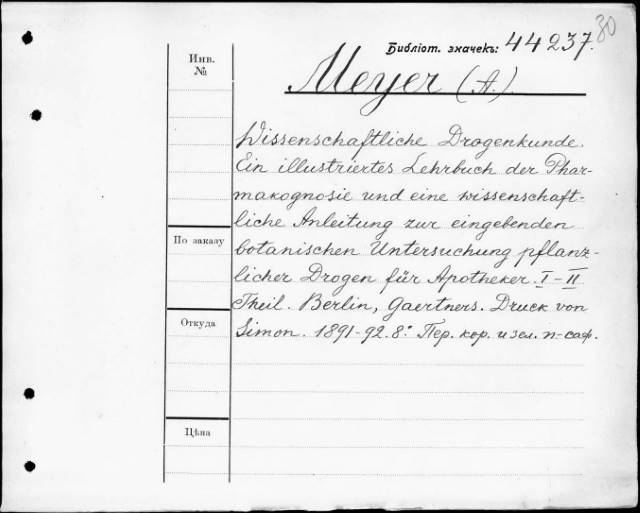 30
Библіот. значекъ: 44237.
Инв.
№
Meyer (A.)
Wissenschaftliche Drogenkunde.
Ein illustriertes Lehrbuch der Phar-
makognosie und eine wissenschaft-
liche Anleitung zur eingebenden
botanischen Untersuchung pflanz-
licher Drogen für Apotheker. I-II
Theil. Berlin, Gaertners. Druck von
Simon. 1891-92. 8º. Пер. кор. и зел. п-саф.
По заказу
Откуда
Цѣна